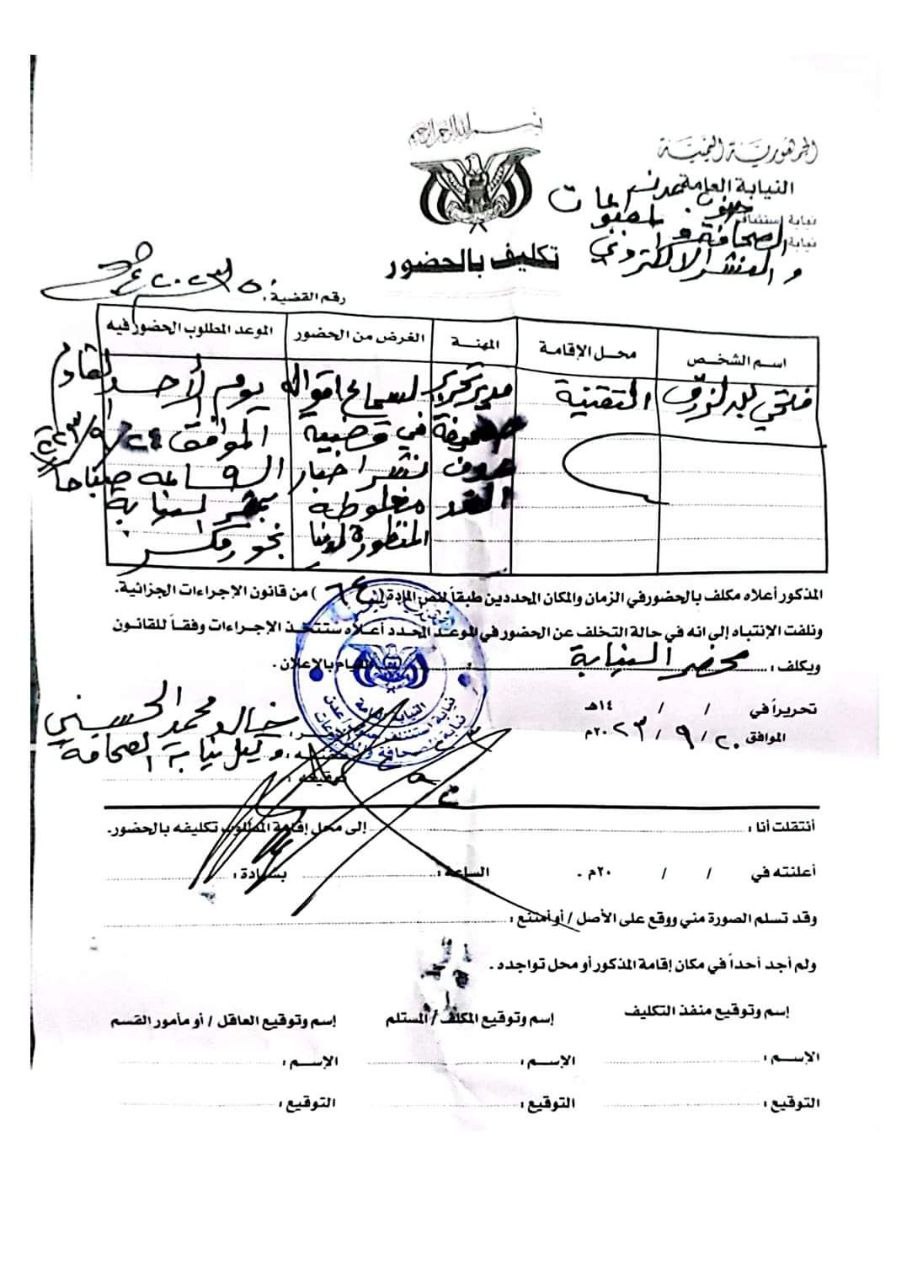 بسم الله الرحمن الرحيم
الجمهورية اليمنية
النيابة العامة
نيابة استئناف جنوب عدن
نيابة الصحافة والمطبوعات
والنشر الالكتروني
تكليف بالحضور
رقم القضية :
اسم الشخص محل الإقامة المهنة الغرض من الحضور الموعد المطلوب الحضور فيه
فتحي بن لزرق التقنية مدير تحرير لسماع اقواله يوم الأحد القادم
صحيفة في قضية الموافق ٢٤/٩/٢٠٢٣
عدن نشر اخبار الساعة صباحا
الغد مغلوطه بمقر النيابة
المنظورة لدينا بخور مكسر
المذكور أعلاه مكلف بالحضور في الزمان والمكان المحددين طبقاً لنص المادة (٦٤) من قانون الإجراءات الجزائية.
ونلفت الإنتباه إلى انه في حالة التخلف عن الحضور في الموعد المحدد أعلاه ستتخذ الإجراءات وفقاً للقانون
ويكلف : محضر النيابة للقيام بالإعلان .
تحريراً في / / ١٤هـ
الموافق ٢٠ / ٩ / ٢٠٢٣م
خالد محمد الحسيني
وكيل نيابة الصحافة
توقيعه :
النيابة العامة
أنتقلت أنا : إلى محل إقامة المطلوب تكليفه بالحضور.
أعلنته في / / ٢٠م . الساعة : بشهادة :
وقد تسلم الصورة مني ووقع على الأصل / أو أمتنع :
ولم أجد أحداً في مكان إقامة المذكور أو محل تواجده .
إسم وتوقيع منفذ التكليف إسم وتوقيع المكلف / المستلم إسم وتوقيع العاقل / أو مأمور القسم
الإسم : الإسم : الإسم :
التوقيع : التوقيع : التوقيع :